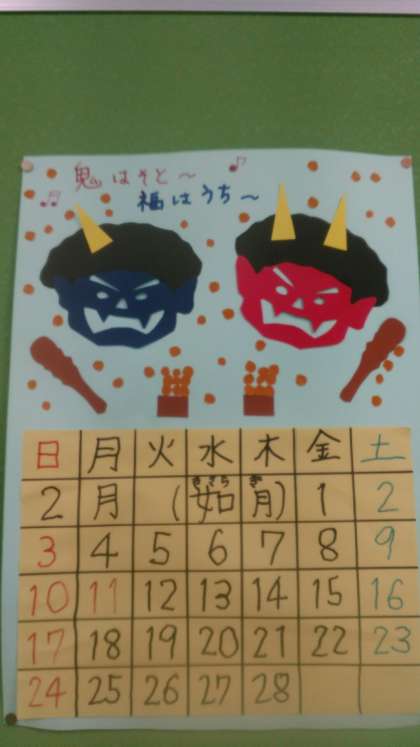 鬼はそと～
福はうち～
日 月 火 水 木 金 土
2 月 (如月) 1 2
きさらぎ
3 4 5 6 7 8 9
10 11 12 13 14 15 16
17 18 19 20 21 22 23
24 25 26 27 28